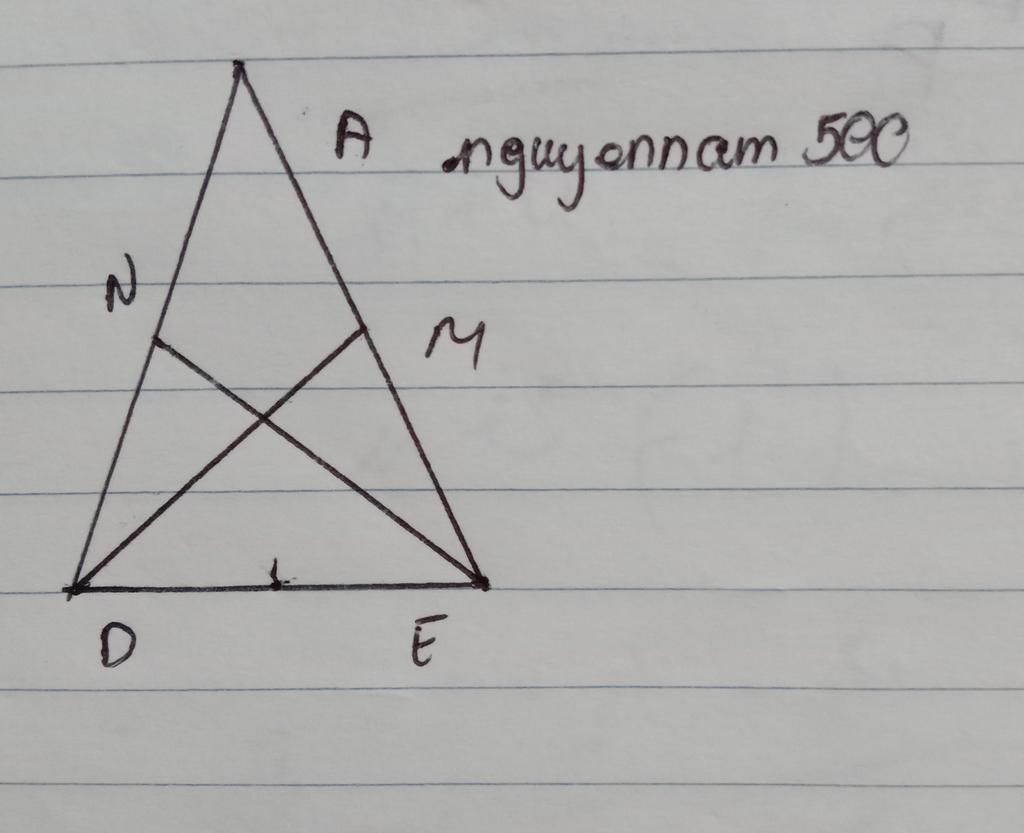 A nguyonnam 500
N
M
D E